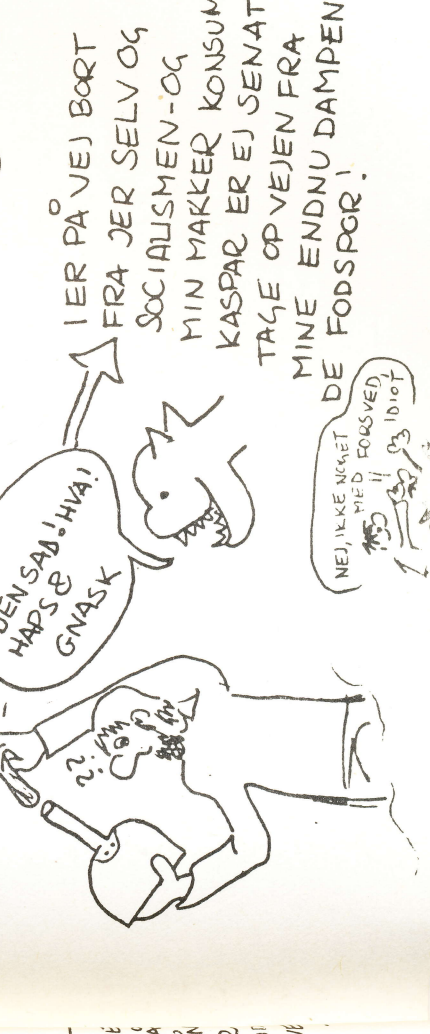 DEN SAD! HVA!
HAPS &
GNASK
I ER PÅ VEJ BORT
FRA JER SELV OG
SOCIALISMEN - OG
MIN MAKKER KONSUM
KASPAR ER EJ SENAT
TAGE OP VEJEN FRA
MINE ENDNU DAMPEN
DE FODSPOR!
??
NEJ, IKKE NOGET
MED FORSVED
IDIOT